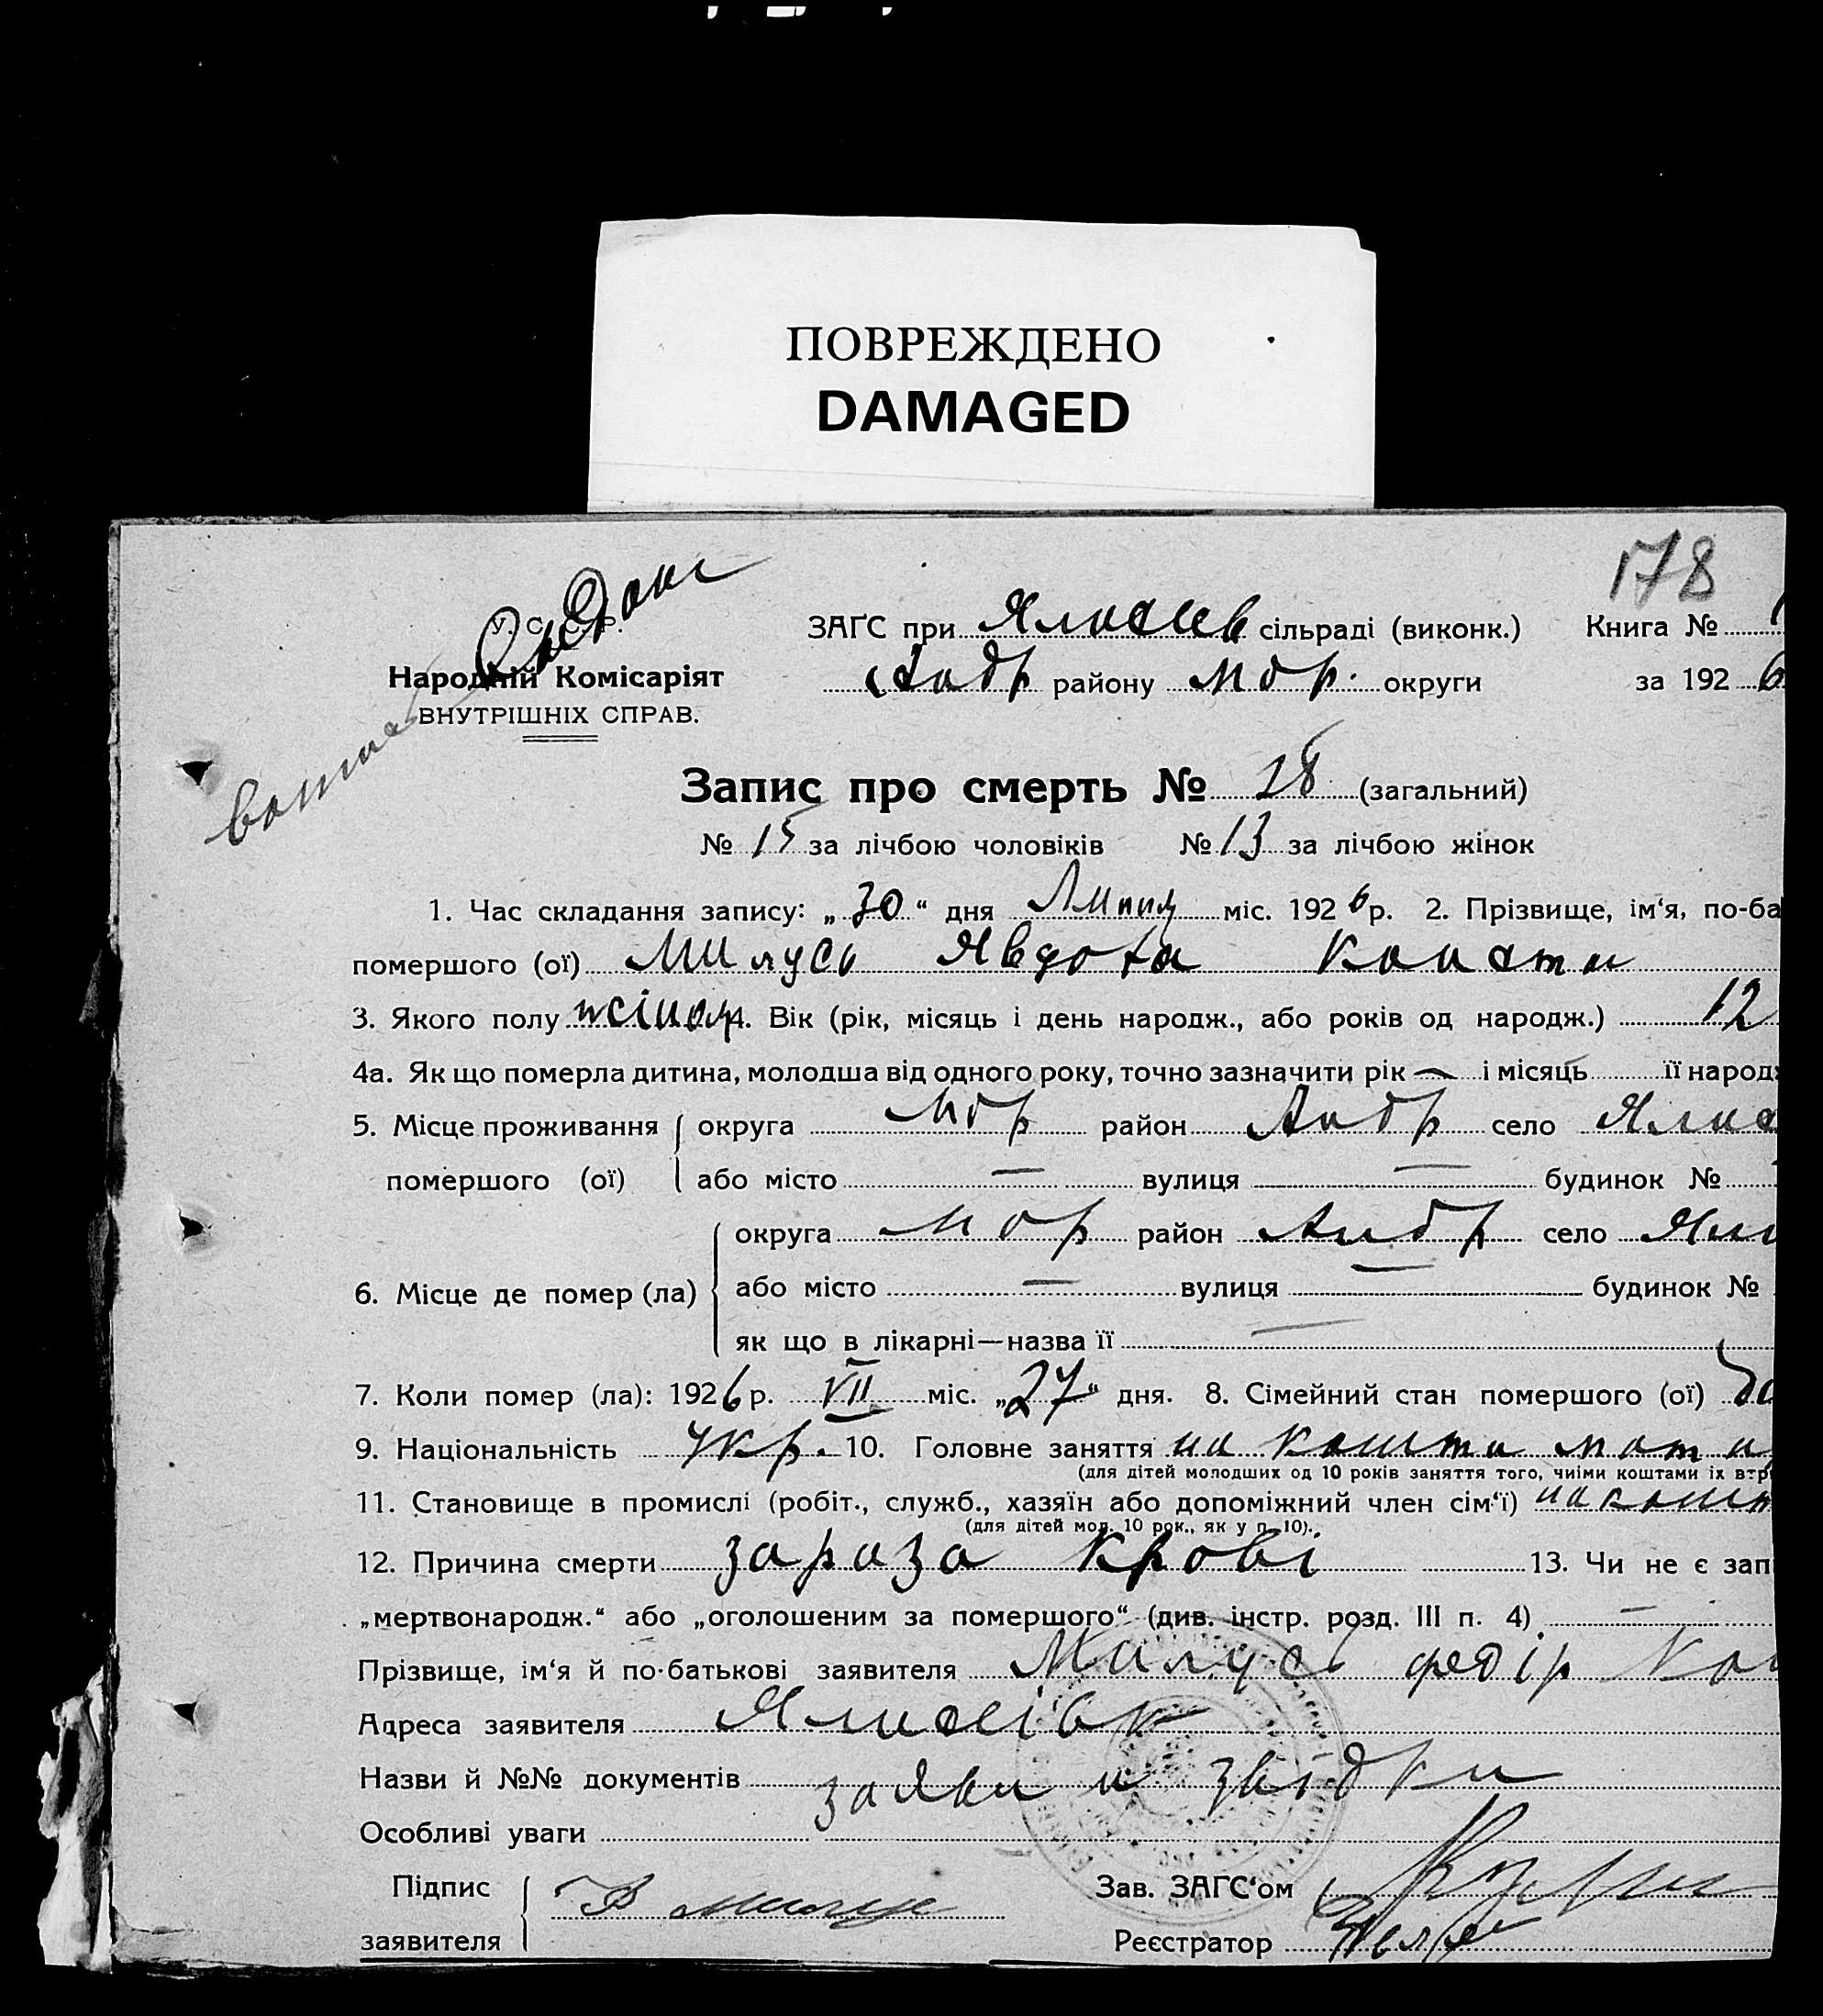 ПОВРЕЖДЕНО
DAMAGED
178
У. С. С. Р.
ЗАҐС при Ялисеев сільраді (виконк.) Книга №
Народній Комісаріят
Андр району Мор. округи за 1926
ВНУТРІШНІХ СПРАВ.
Запис про смерть № 28 (загальний)
№ 15 за лічбою чоловіків № 13 за лічбою жінок
1. Час складання запису: „30“ дня Липня міс. 1926 р. 2. Прізвище, ім‘я, по-ба
помершого (ої) Милусь Явдоха Консти
3. Якого полу жіноч 4. Вік (рік, місяць і день народж., або років од народж.) 12
4а. Як що померла дитина, молодша від одного року, точно зазначити рік — і місяць її народ
5. Місце проживання округа Мор район Андр село Ялис
помершого (ої) або місто — вулиця — будинок №
округа Мор район Андр село Яли
6. Місце де помер (ла) або місто — вулиця — будинок №
як що в лікарні—назва її —
7. Коли помер (ла): 1926 р. VII міс. „27“ дня. 8. Сімейний стан помершого (ої)
9. Національність Укр. 10. Головне заняття на кошти мати
(для дітей молодших од 10 років заняття того, чиїми коштами їх втр
11. Становище в промислі (робіт., служб., хазяїн або допоміжний член сім‘ї) на кошт
(для дітей мол. 10 рок., як у п. 10).
12. Причина смерти зараза крові 13. Чи не є зап
„мертвонародж.“ або „оголошеним за помершого“ (див. інстр. розд. III п. 4) —
Прізвище, ім‘я й по-батькові заявителя Милусь Федір Кон
Адреса заявителя Ялисеівк
Назви й №№ документів заяви и звідки
Особливі уваги
Підпис
заявителя
Зав. ЗАГС‘ом
Реєстратор